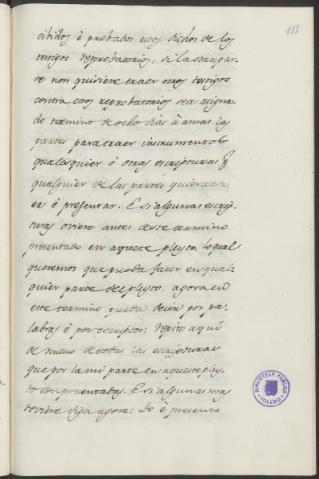 185
cibidos é probados estos dichos de los
testigos reprobatorios, si la otra par-
te non quisiere traer otros testigos
contra esos reprobatorios sea asigna-
do termino de ocho dias à amas las
partes para traer instrumentos
qualesquier ò otras escripturas q
qualquier de las partes quiera tra-
er é presentar. E si algunas escrip-
turas oviere antes deste termino
presentado en aqueste pleyto, lo qual
queremos que pueda facer en qual-
quier parte del pleyto: agora en
este termino pueda decir por pa-
labras é por escripto: repito aqui
de nuevo de todas las escripturas
que por la mi parte en aqueste pley-
to son presentadas. E si algunas mas
toviere diga agora: Do é presento
BIBLIOTECA PÚBLICA
TOLEDO